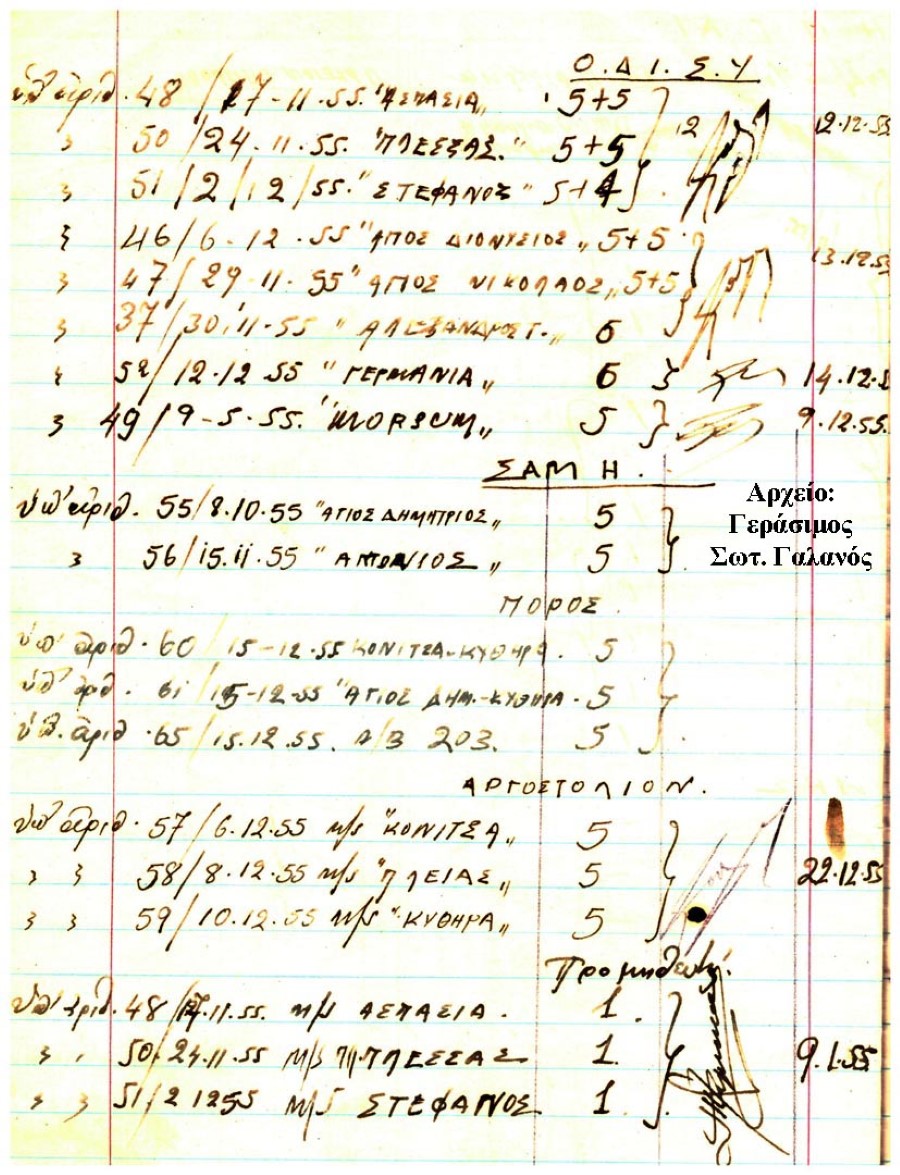 Ο.Δ.Ι.Σ.Υ
ὑπ' ἀριθ. 48 / 17-11-55. "ΑΣΠΑΣΙΑ„ 5+5 12 12.12.55
〃 50 / 24-11-55. "ΠΛΕΣΣΑΣ." 5+5
〃 51/2/12/55. "ΣΤΕΦΑΝΟΣ" 5+4
〃 46/6-12-55 "ΑΓΙΟΣ ΔΙΟΝΥΣΙΟΣ„ 5+5
〃 47/29-11-55 "ΑΓΙΟΣ ΝΙΚΟΛΑΟΣ„ 5+5 13.12.55
〃 37/30-11-55 "ΑΛΕΞΑΝΔΡΟΣ Γ.„ 6
〃 52/12-12 55 "ΓΕΡΜΑΝΙΑ„ 6 14.12.5
〃 49/9-5-55. "MORSUM„ 5 9.12.55.
ΣΑΜΗ.
ὑπ' ἀριθ. 55/8.10.55 "ΑΓΙΟΣ ΔΗΜΗΤΡΙΟΣ„ 5
〃 56/15.11.55 "ΑΝΤΩΝΙΟΣ„ 5
Αρχείο:
Γεράσιμος
Σωτ. Γαλανός
ΠΟΡΟΣ.
ὑπ' ἀριθ. 60 / 15-12-55 ΚΟΝΙΤΣΑ-ΚΥΘΗΡΑ. 5
ὑπ' ἀριθ. 61 / 15-12-55 "ΑΓΙΟΣ ΔΗΜ.-ΚΥΘΗΡΑ - 5
ὑπ. ἀριθ. 65/15.12.55. Α/Β 203. 5
ΑΡΓΟΣΤΟΛΙΟΝ.
ὑπ' ἀριθ. 57/6.12.55 M/S "ΚΟΝΙΤΣΑ„ 5
〃 〃 58/8.12.55 M/S "ΠΛΕΙΑΣ„ 5 22.12.55
〃 〃 59/10.12.55 M/S "ΚΥΘΗΡΑ„ 5
Προμηθευτή:
ὑπ' ἀριθ. 48/17.11.55. M/S ΑΣΠΑΣΙΑ. 1.
〃 〃 50/24.11.55 M/S ΠΛΕΣΣΑΣ 1. 9.1.55
〃 〃 51/2 1255 M/S ΣΤΕΦΑΝΟΣ 1.